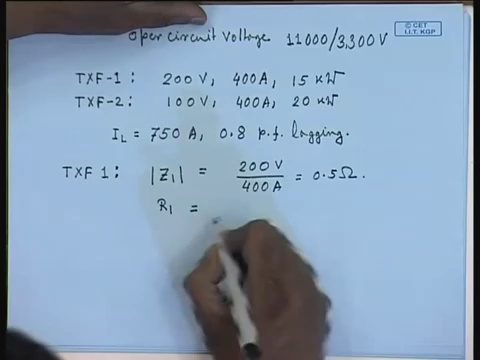 Open circuit Voltage 11000/3300V
© CET
I.I.T. KGP
TXF-1 : 200 V, 400A, 15 kW
TXF-2 : 100 V, 400A, 20 kW
IL = 750 A, 0.8 p.f. lagging.
TXF 1 : |Z1| = 200 V / 400A = 0.5Ω.
R1 =